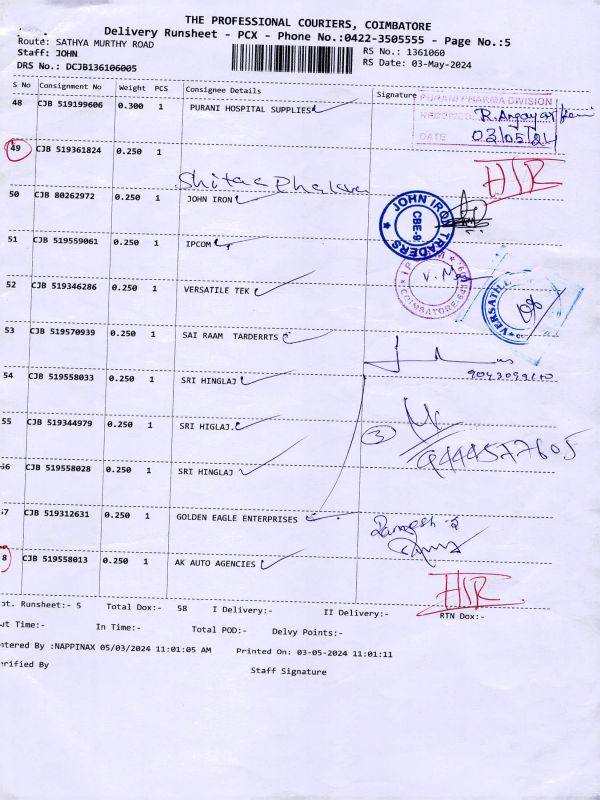 THE PROFESSIONAL COURIERS, COIMBATORE
Delivery Runsheet - PCX - Phone No.:0422-3505555 - Page No.:5
Route: SATHYA MURTHY ROAD RS No.: 1361060
Staff: JOHN RS Date: 03-May-2024
DRS No.: DCJB136106005
S No Consignment No Weight PCS Consignee Details Signature
48 CJB 519199606 0.300 1 PURANI HOSPITAL SUPPLIES
PURANI PHARMA DIVISION
DATE 03/05/24
49 CJB 519361824 0.250 1
HIR
50 CJB 80262972 0.250 1 JOHN IRON
JOHN IRON TRADERS CBE-9
51 CJB 519559061 0.250 1 IPCOM
COIMBATORE
52 CJB 519346286 0.250 1 VERSATILE TEK
VERSATILE
53 CJB 519570939 0.250 1 SAI RAAM TARDERRTS
54 CJB 519558033 0.250 1 SRI HINGLAJ
55 CJB 519344979 0.250 1 SRI HIGLAJ.
3
9444577605
56 CJB 519558028 0.250 1 SRI HINGLAJ
57 CJB 519312631 0.250 1 GOLDEN EAGLE ENTERPRISES
8 CJB 519558013 0.250 1 AK AUTO AGENCIES
HIR
ot. Runsheet:- 5 Total Dox:- 58 I Delivery:- II Delivery:- RTN Dox:-
ut Time:- In Time:- Total POD:- Delvy Points:-
ntered By :NAPPINAX 05/03/2024 11:01:05 AM Printed On: 03-05-2024 11:01:11
erified By Staff Signature